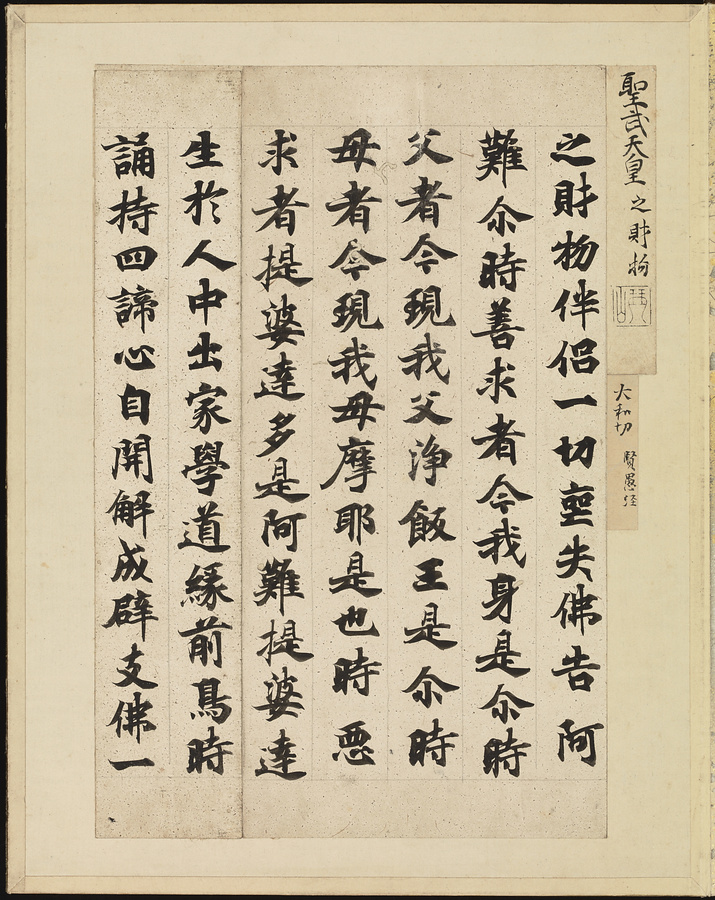 聖武天皇 之財物
大和切 賢愚経
之財物伴侶一切喪失佛告阿
難尒時善求者今我身是尒時
父者今現我父浄飯王是尒時
母者今現我母摩耶是也時悪
求者提婆達多是阿難提婆達
生於人中出家學道縁前鳥時
誦持四諦心自開解成辟支佛一